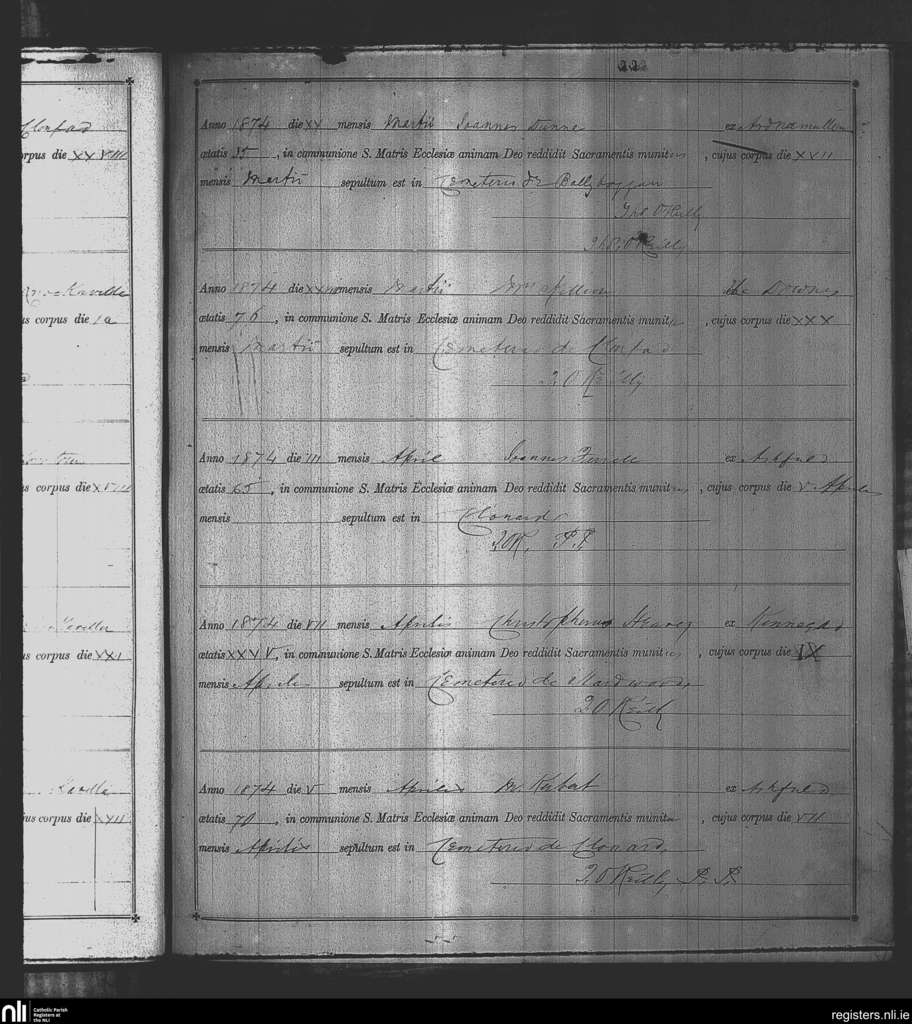 222
Clonpad
corpus die XXVIII
us corpus die 1a
us corpus die XVIII
us corpus die XXI
us corpus die XXII
Anno 1874 die XV mensis Martii Joannes Dunne ex Ardnamullen
ætatis 35, in communione S. Matris Ecclesiæ animam Deo reddidit Sacramentis munitus, cujus corpus die XVII
mensis Martii sepultum est in Cemeterio de Ballyboggan
Ths O'Reilly
Ths O'Reilly
Anno 1874 die mensis Martii Mrs the Downs
ætatis 76, in communione S. Matris Ecclesiæ animam Deo reddidit Sacramentis munit , cujus corpus die XXX
mensis Martii sepultum est in Cemeterio de Clonpad
T. O'Reilly
Anno 1874 die III mensis April Joannes Ferrell ex Ashfield
ætatis 65, in communione S. Matris Ecclesiæ animam Deo reddidit Sacramentis munitus, cujus corpus die V Aprilis
mensis sepultum est in Clonard
T.O'R. P.P.
Anno 1874 die VII mensis Aprilis Christopherus Heavey ex Kinnegad
ætatis XXXV, in communione S. Matris Ecclesiæ animam Deo reddidit Sacramentis munitus, cujus corpus die IX
mensis Aprilis sepultum est in Cemeterio de Hardwood
T. O'Reilly
Anno 1874 die V mensis Aprilis ex Ashfield
ætatis 70, in communione S. Matris Ecclesiæ animam Deo reddidit Sacramentis munit , cujus corpus die VII
mensis Aprilis sepultum est in Cemeterio de Clonard
T. O'Reilly P.P.
nli Catholic Parish
Registers at
the NLI
registers.nli.ie